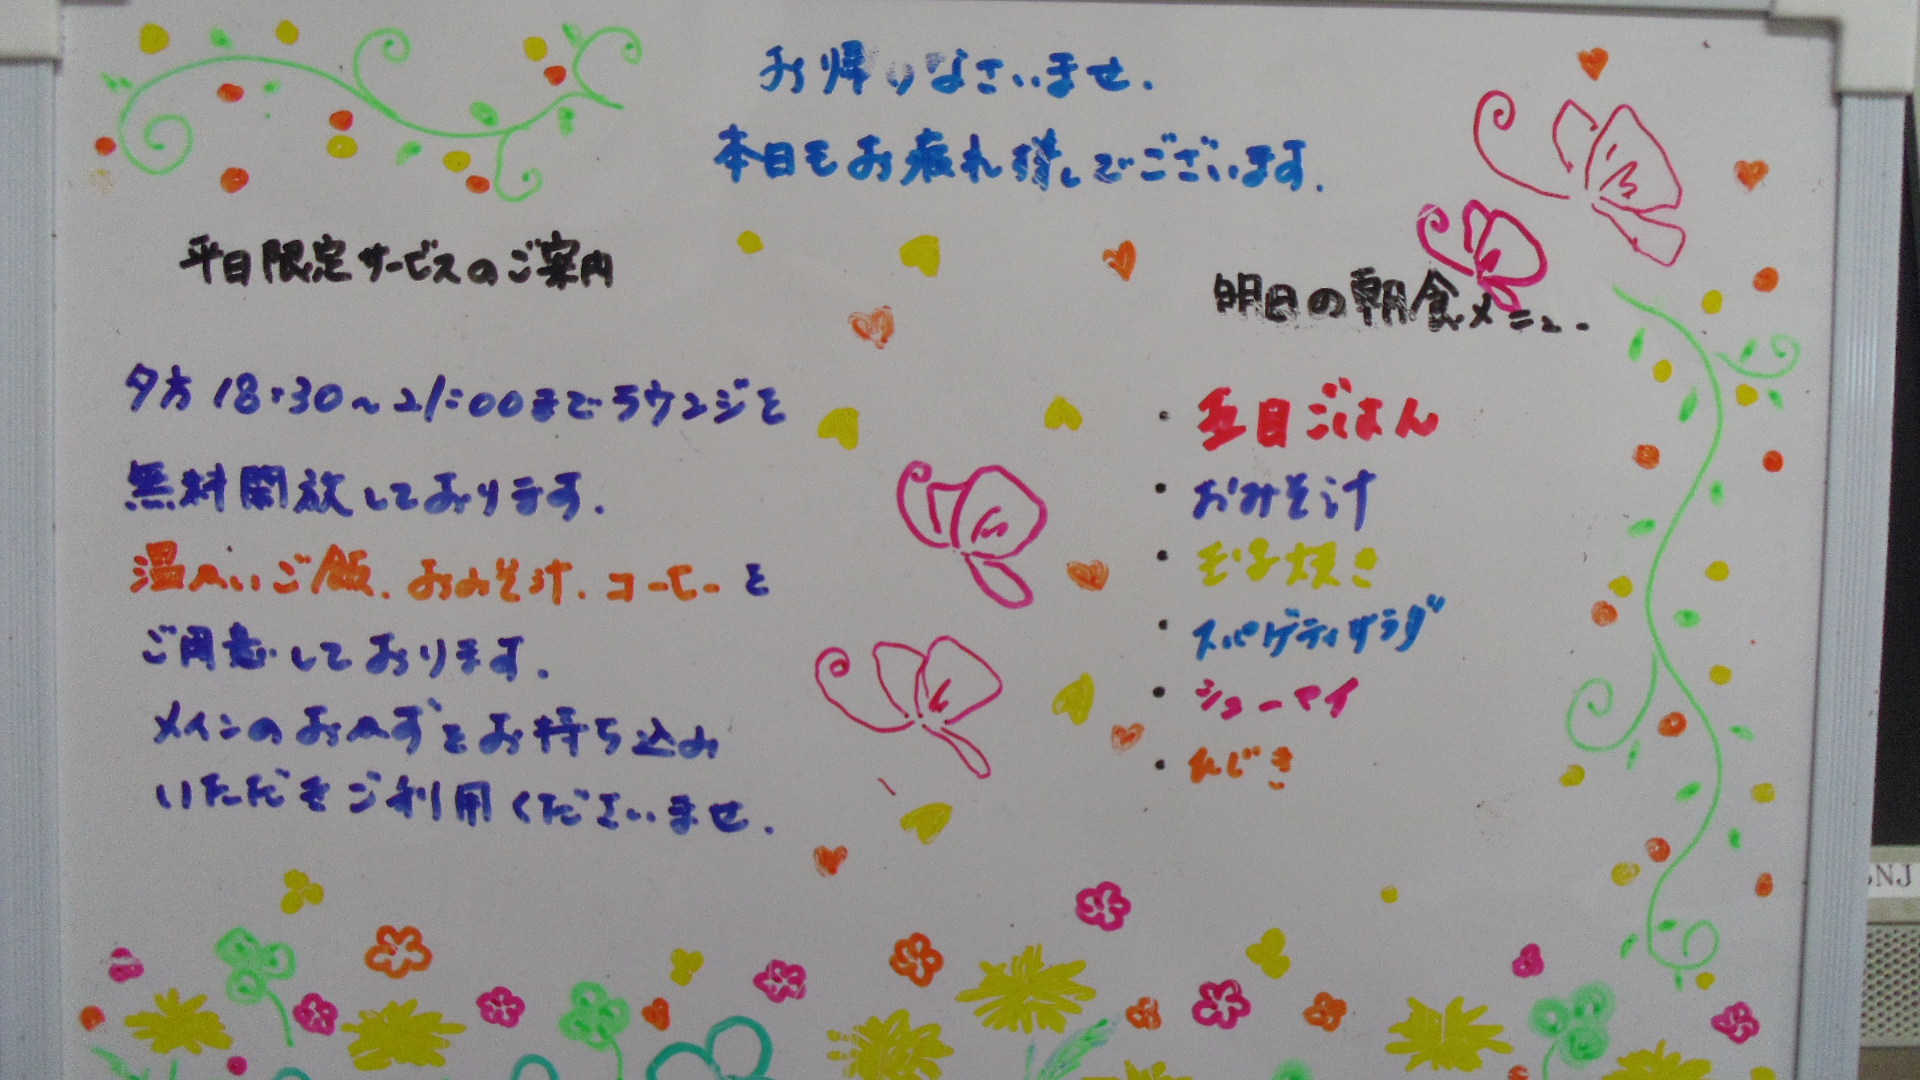 お帰りなさいませ.
本日もお疲れ様でございます.
平日限定サービスのご案内
夕方18:30～21:00までラウンジを
無料開放しております.
温かいご飯.おみそ汁.コーヒーを
ご用意しております.
メインのおかずをお持ち込み
いただきご利用くださいませ.
明日の朝食メニュー
・五目ごはん
・おみそ汁
・玉子焼き
・スパゲティサラダ
・シューマイ
・ひじき
NJ